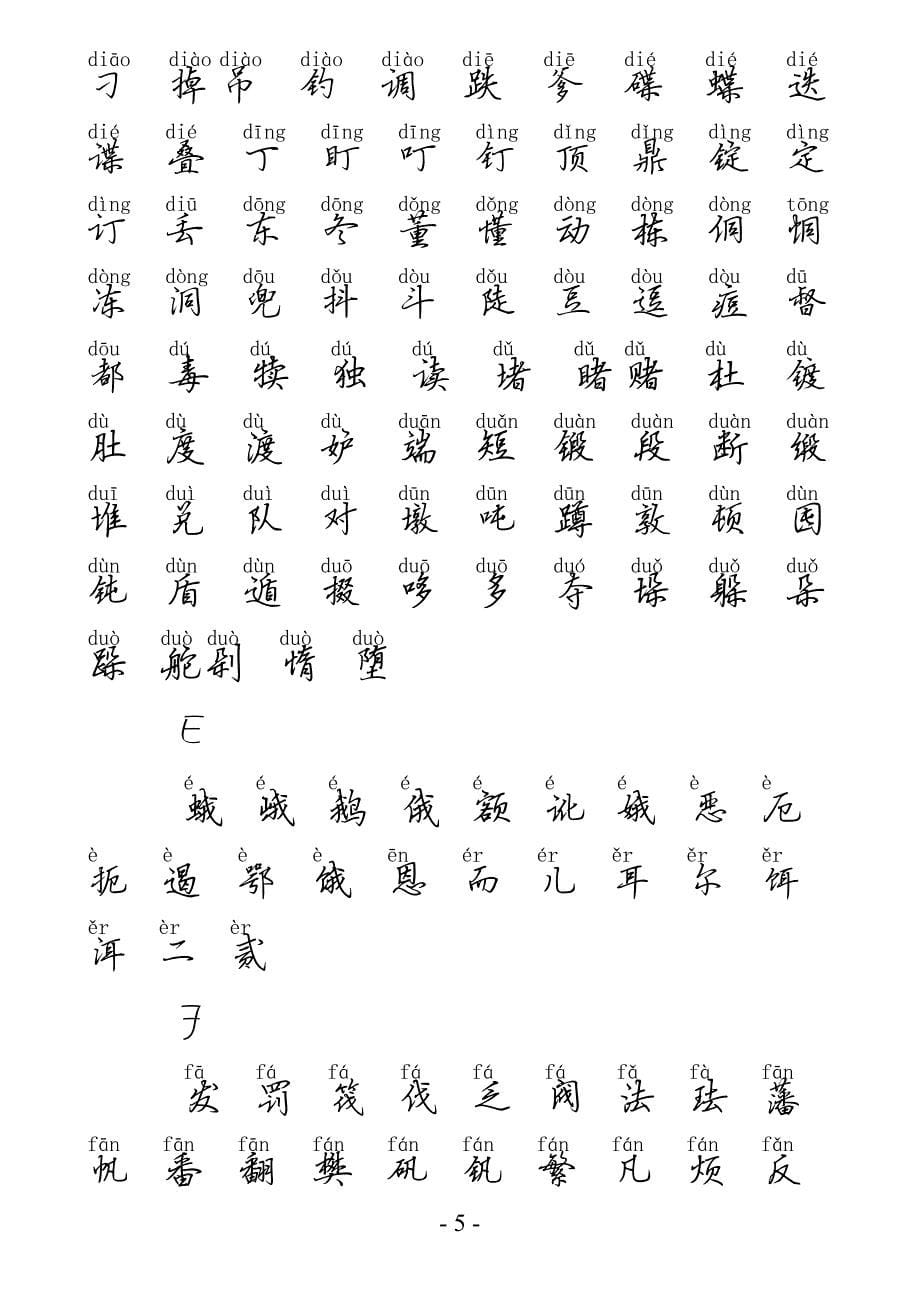 diāo diào diào diào diào diē diē dié dié dié
刁 掉 吊 钓 调 跌 爹 碟 蝶 迭
dié dié dīng dīng dīng dìng dǐng dǐng dìng dìng
谍 叠 丁 盯 叮 钉 顶 鼎 锭 定
dìng diū dōng dōng dǒng dǒng dòng dòng dòng tōng
订 丢 东 冬 董 懂 动 栋 侗 恫
dòng dòng dōu dǒu dòu dǒu dòu dòu dòu dū
冻 洞 兜 抖 斗 陡 豆 逗 痘 督
dōu dú dú dú dú dǔ dǔ dǔ dù dù
都 毒 犊 独 读 堵 睹 赌 杜 镀
dù dù dù dù duān duǎn duàn duàn duàn duàn
肚 度 渡 妒 端 短 锻 段 断 缎
duī duì duì duì dūn dūn dūn dūn dùn dùn
堆 兑 队 对 墩 吨 蹲 敦 顿 囤
dùn dùn dùn duō duō duō duó duǒ duǒ duǒ
钝 盾 遁 掇 哆 多 夺 垛 躲 朵
duò duò duò duò duò
跺 舵 剁 惰 堕
E
é é é é é é é è è
蛾 峨 鹅 俄 额 讹 娥 恶 厄
è è è è ēn ér ér ěr ěr ěr
扼 遏 鄂 饿 恩 而 儿 耳 尔 饵
ěr èr èr
洱 二 贰
F
fā fá fá fá fá fá fǎ fà fān
发 罚 筏 伐 乏 阀 法 珐 藩
fān fān fān fán fán fán fán fán fán fǎn
帆 番 翻 樊 矾 钒 繁 凡 烦 反
- 5 -